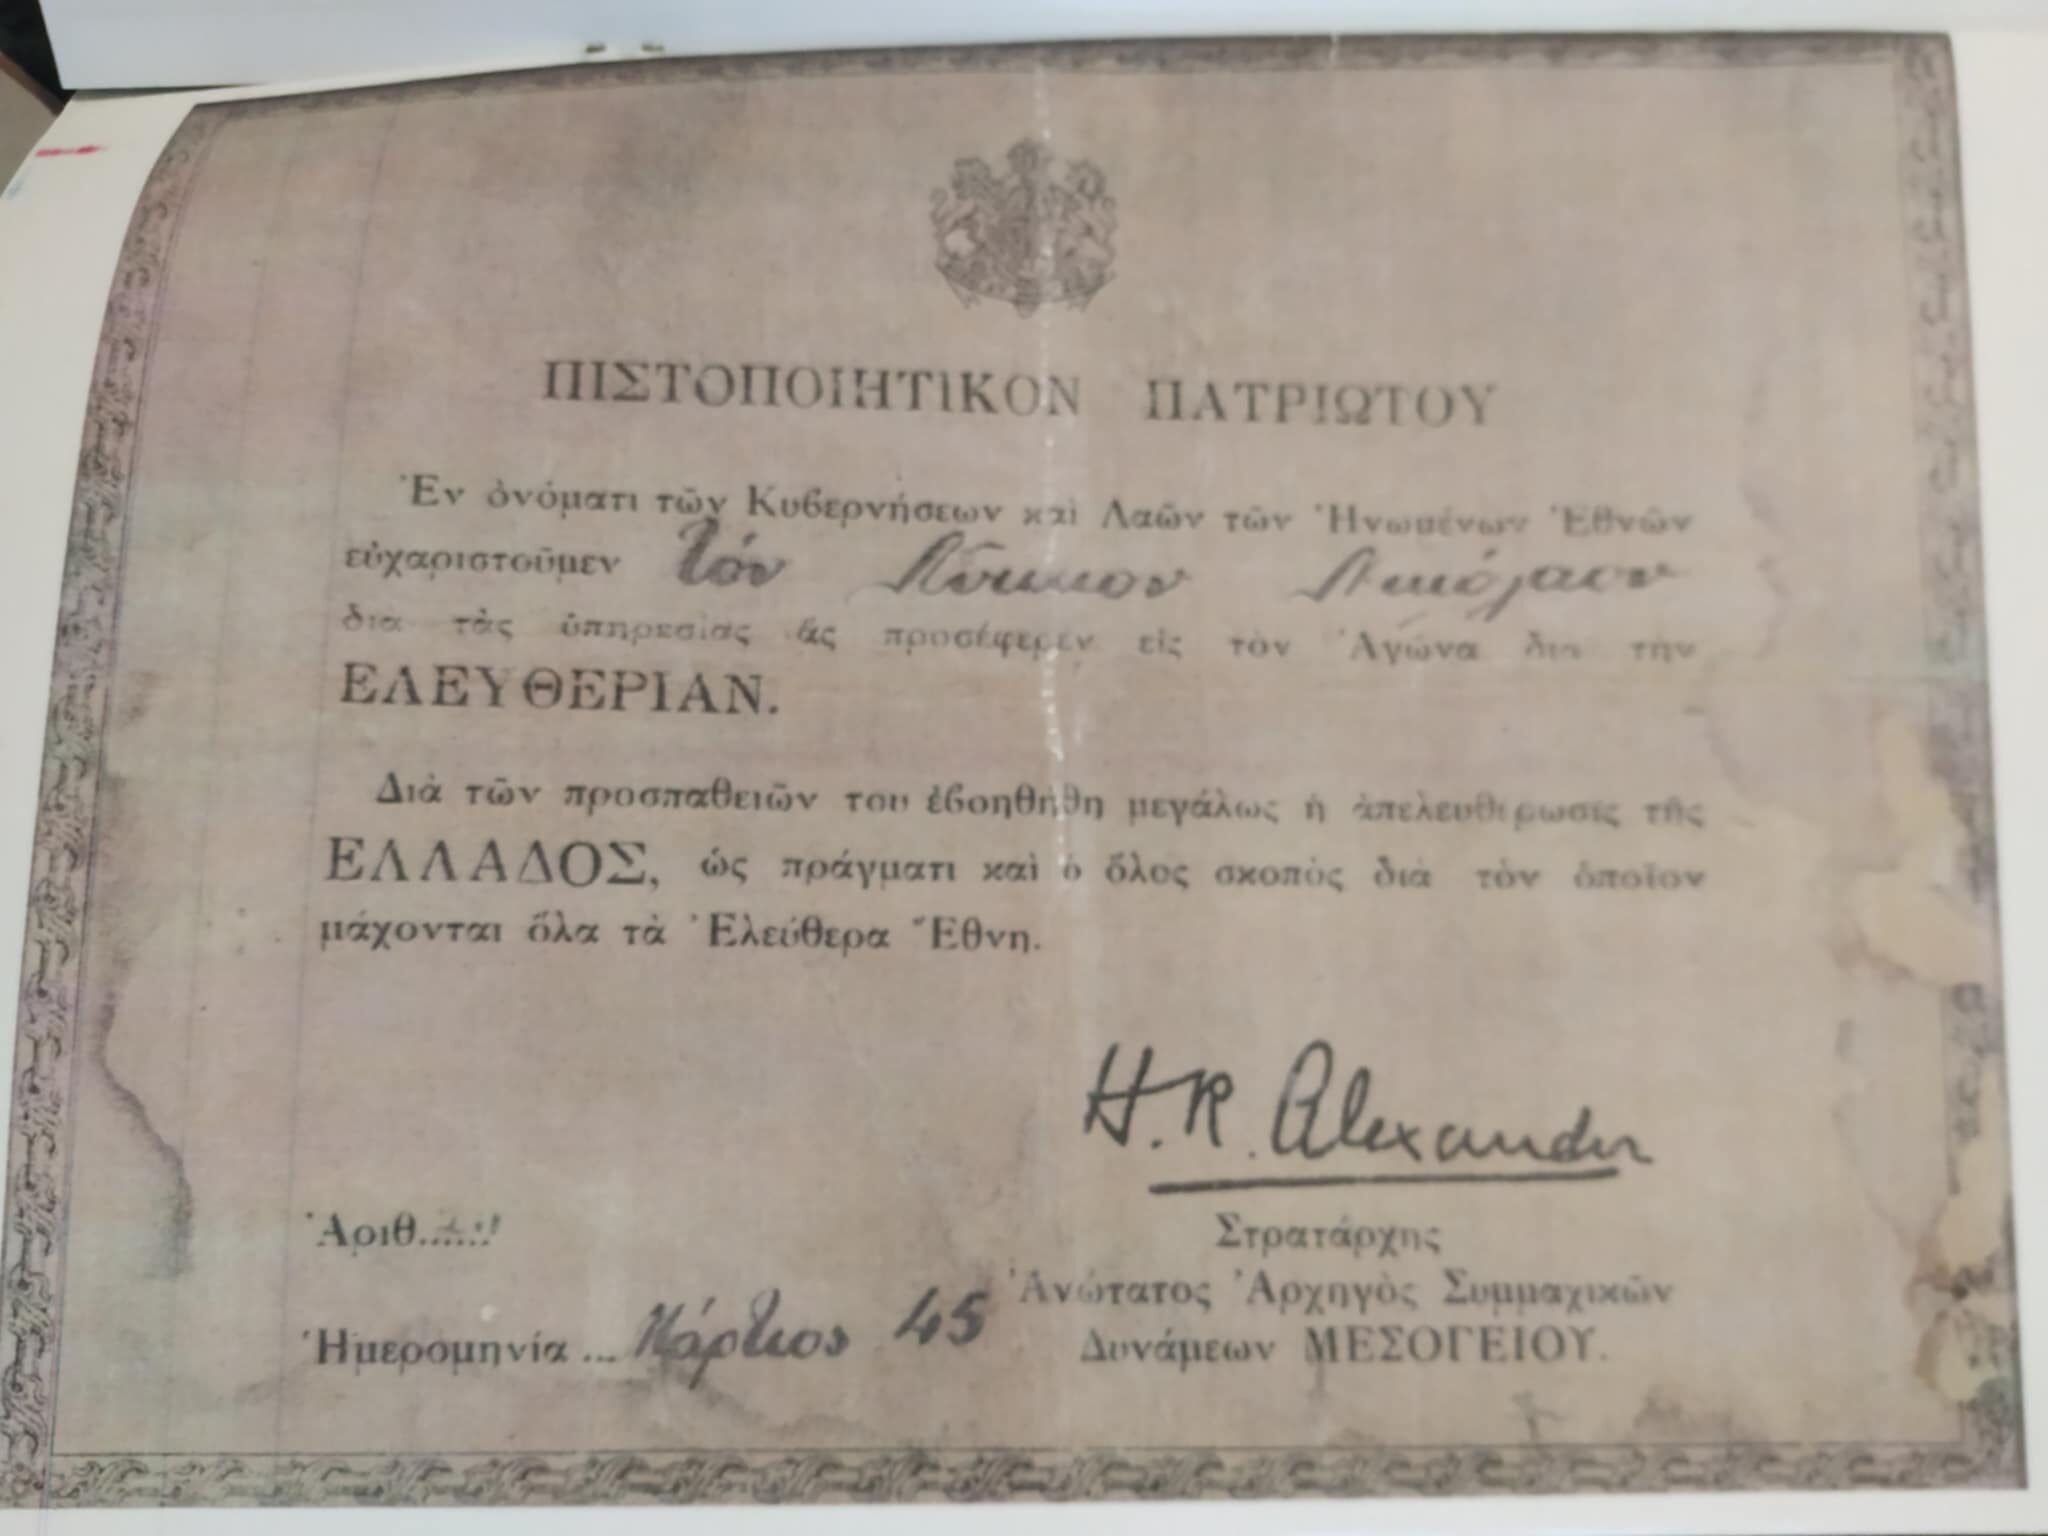 ΠΙΣΤΟΠΟΙΗΤΙΚΟΝ ΠΑΤΡΙΩΤΟΥ
Ἐν ὀνόματι τῶν Κυβερνήσεων καὶ Λαῶν τῶν Ἡνωμένων Ἐθνῶν
εὐχαριστοῦμεν τόν Νικόλαον
διὰ τὰς ὑπηρεσίας ἃς προσέφερεν εἰς τὸν Ἀγῶνα διὰ τὴν
ΕΛΕΥΘΕΡΙΑΝ.
Διὰ τῶν προσπαθειῶν του ἐβοηθήθη μεγάλως ἡ ἀπελευθέρωσις τῆς
ΕΛΛΑΔΟΣ, ὡς πράγματι καὶ ὁ ὅλος σκοπὸς διὰ τὸν ὁποῖον
μάχονται ὅλα τὰ Ἐλεύθερα Ἔθνη.
H. R. Alexander
Ἀριθ......
Στρατάρχης
Ἀνώτατος Ἀρχηγὸς Συμμαχικῶν
Ἡμερομηνία ... Μάρτιος 45
Δυνάμεων ΜΕΣΟΓΕΙΟΥ.